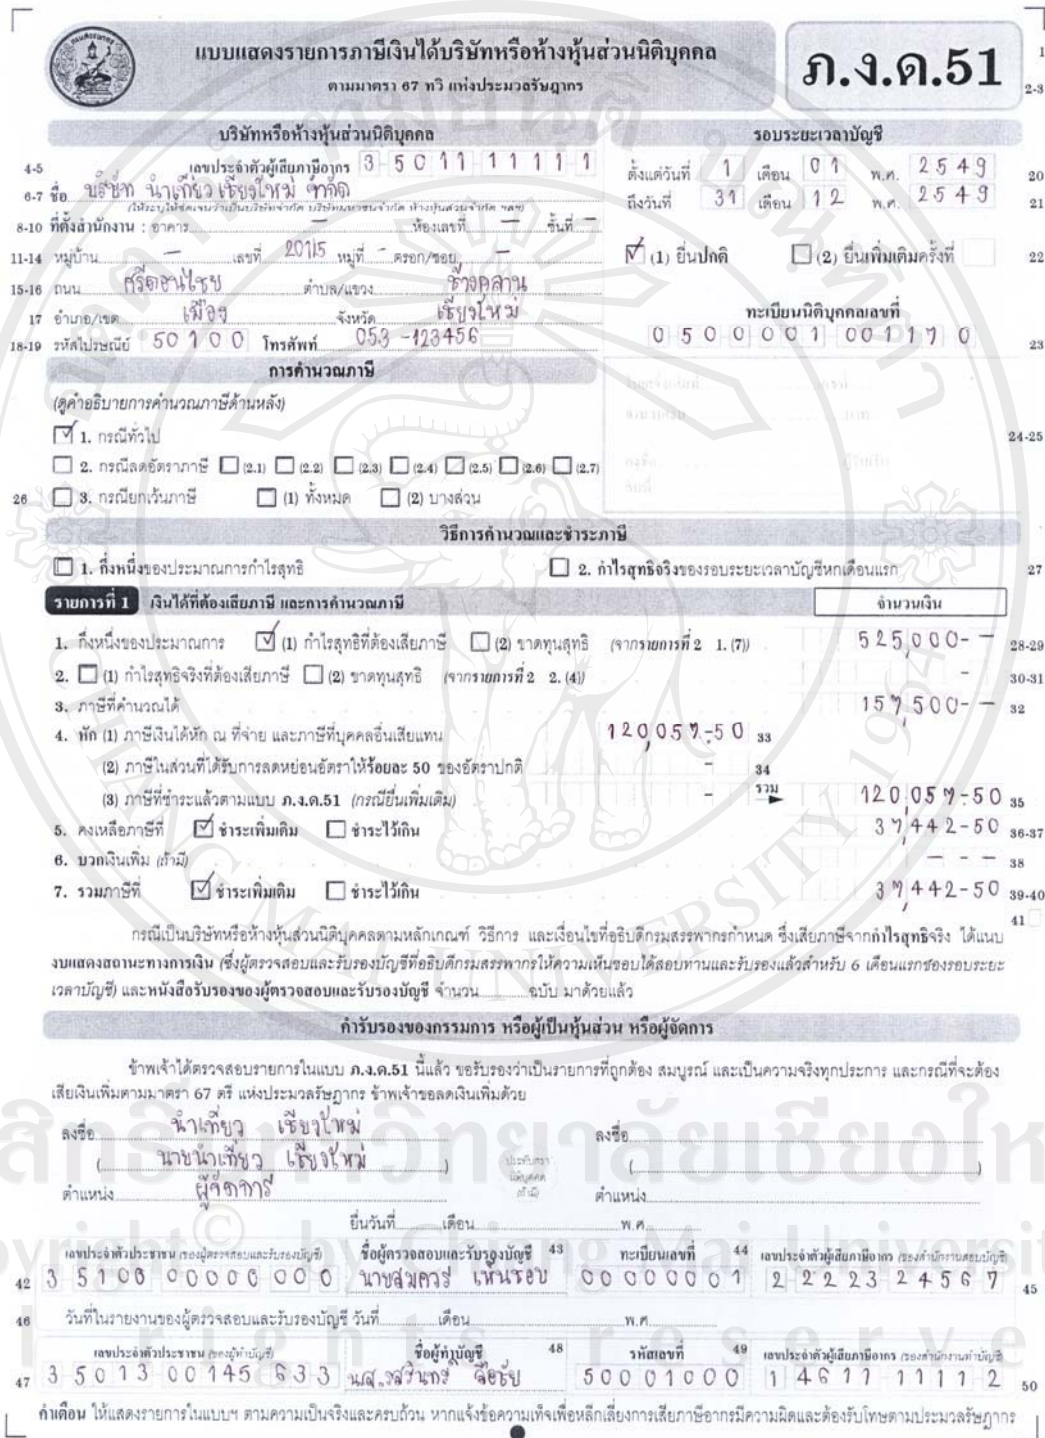 แบบแสดงรายการภาษีเงินได้บริษัทหรือห้างหุ้นส่วนนิติบุคคล
ตามมาตรา 67 ทวิ แห่งประมวลรัษฎากร
ภ.ง.ด.51
1
2-3
บริษัทหรือห้างหุ้นส่วนนิติบุคคล
4-5 เลขประจำตัวผู้เสียภาษีอากร 3 5011 1111 1
6-7 ชื่อ บริษัท นำเที่ยวเชียงใหม่ จำกัด
(ให้ระบุให้ชัดเจนว่าเป็นบริษัทจำกัด บริษัทมหาชนจำกัด ห้างหุ้นส่วนจำกัด ฯลฯ)
8-10 ที่ตั้งสำนักงาน : อาคาร - ห้องเลขที่ - ชั้นที่ -
11-14 หมู่บ้าน - เลขที่ 201/5 หมู่ที่ - ตรอก/ซอย -
15-16 ถนน ศรีดอนไชย ตำบล/แขวง ช้างคลาน
17 อำเภอ/เขต เมือง จังหวัด เชียงใหม่
18-19 รหัสไปรษณีย์ 50100 โทรศัพท์ 053-123456
รอบระยะเวลาบัญชี
ตั้งแต่วันที่ 1 เดือน 01 พ.ศ. 2549 20
ถึงวันที่ 31 เดือน 12 พ.ศ. 2549 21
☑ (1) ยื่นปกติ ☐ (2) ยื่นเพิ่มเติมครั้งที่ 22
ทะเบียนนิติบุคคลเลขที่
0 5 0 0 0 0 1 0 0 1 1 7 0 23
การคำนวณภาษี
(ดูคำอธิบายการคำนวณภาษีด้านหลัง)
☑ 1. กรณีทั่วไป
24-25
☐ 2. กรณีลดอัตราภาษี ☐ (2.1) ☐ (2.2) ☐ (2.3) ☐ (2.4) ☐ (2.5) ☐ (2.6) ☐ (2.7)
26 ☐ 3. กรณียกเว้นภาษี ☐ (1) ทั้งหมด ☐ (2) บางส่วน
วิธีการคำนวณและชำระภาษี
☐ 1. กึ่งหนึ่งของประมาณการกำไรสุทธิ ☐ 2. กำไรสุทธิจริงของรอบระยะเวลาบัญชีหกเดือนแรก 27
รายการที่ 1 เงินได้ที่ต้องเสียภาษี และการคำนวณภาษี จำนวนเงิน
1. กึ่งหนึ่งของประมาณการ ☑ (1) กำไรสุทธิที่ต้องเสียภาษี ☐ (2) ขาดทุนสุทธิ (จากรายการที่ 2 1. (7)) 525,000-- 28-29
2. ☐ (1) กำไรสุทธิจริงที่ต้องเสียภาษี ☐ (2) ขาดทุนสุทธิ (จากรายการที่ 2 2. (4)) - 30-31
3. ภาษีที่คำนวณได้ 157,500-- 32
4. หัก (1) ภาษีเงินได้หัก ณ ที่จ่าย และภาษีที่บุคคลอื่นเสียแทน 120,057-50 33
(2) ภาษีในส่วนที่ได้รับการลดหย่อนอัตราให้ร้อยละ 50 ของอัตราปกติ - 34
(3) ภาษีที่ชำระแล้วตามแบบ ภ.ง.ด.51 (กรณียื่นเพิ่มเติม) - รวม 120,057-50 35
5. คงเหลือภาษีที่ ☑ ชำระเพิ่มเติม ☐ ชำระไว้เกิน 37,442-50 36-37
6. บวกเงินเพิ่ม (ถ้ามี) - - - 38
7. รวมภาษีที่ ☑ ชำระเพิ่มเติม ☐ ชำระไว้เกิน 37,442-50 39-40
41
กรณีเป็นบริษัทหรือห้างหุ้นส่วนนิติบุคคลตามหลักเกณฑ์ วิธีการ และเงื่อนไขที่อธิบดีกรมสรรพากรกำหนด ซึ่งเสียภาษีจากกำไรสุทธิจริง ได้แนบ
งบแสดงสถานะทางการเงิน (ซึ่งผู้ตรวจสอบและรับรองบัญชีที่อธิบดีกรมสรรพากรให้ความเห็นชอบได้สอบทานและรับรองแล้วสำหรับ 6 เดือนแรกของรอบระยะ
เวลาบัญชี) และหนังสือรับรองของผู้ตรวจสอบและรับรองบัญชี จำนวน ฉบับ มาด้วยแล้ว
คำรับรองของกรรมการ หรือผู้เป็นหุ้นส่วน หรือผู้จัดการ
ข้าพเจ้าได้ตรวจสอบรายการในแบบ ภ.ง.ด.51 นี้แล้ว ขอรับรองว่าเป็นรายการที่ถูกต้อง สมบูรณ์ และเป็นความจริงทุกประการ และกรณีที่จะต้อง
เสียเงินเพิ่มตามมาตรา 67 ตรี แห่งประมวลรัษฎากร ข้าพเจ้าขอลดเงินเพิ่มด้วย
ลงชื่อ นำเที่ยว เชียงใหม่ ลงชื่อ
( นายนำเที่ยว เชียงใหม่ ) ประทับตรา นิติบุคคล (ถ้ามี) ( )
ตำแหน่ง ผู้จัดการ ตำแหน่ง
ยื่นวันที่ เดือน พ.ศ.
เลขประจำตัวประชาชน (ของผู้ตรวจสอบและรับรองบัญชี) ชื่อผู้ตรวจสอบและรับรองบัญชี 43 ทะเบียนเลขที่ 44 เลขประจำตัวผู้เสียภาษีอากร (ของสำนักงานสอบบัญชี)
42 3 5100 00000 00 0 นายสมควร เห็นชอบ 00000001 2 2223 2456 7 45
46 วันที่ในรายงานของผู้ตรวจสอบและรับรองบัญชี วันที่ เดือน พ.ศ.
เลขประจำตัวประชาชน (ของผู้ทำบัญชี) ชื่อผู้ทำบัญชี 48 รหัสเลขที่ 49 เลขประจำตัวผู้เสียภาษีอากร (ของสำนักงานทำบัญชี)
47 3 5013 00145 63 3 50001000 1 4611 1111 2 50
คำเตือน ให้แสดงรายการในแบบฯ ตามความเป็นจริงและครบถ้วน หากแจ้งข้อความเท็จเพื่อหลีกเลี่ยงการเสียภาษีอากรมีความผิดและต้องรับโทษตามประมวลรัษฎากร